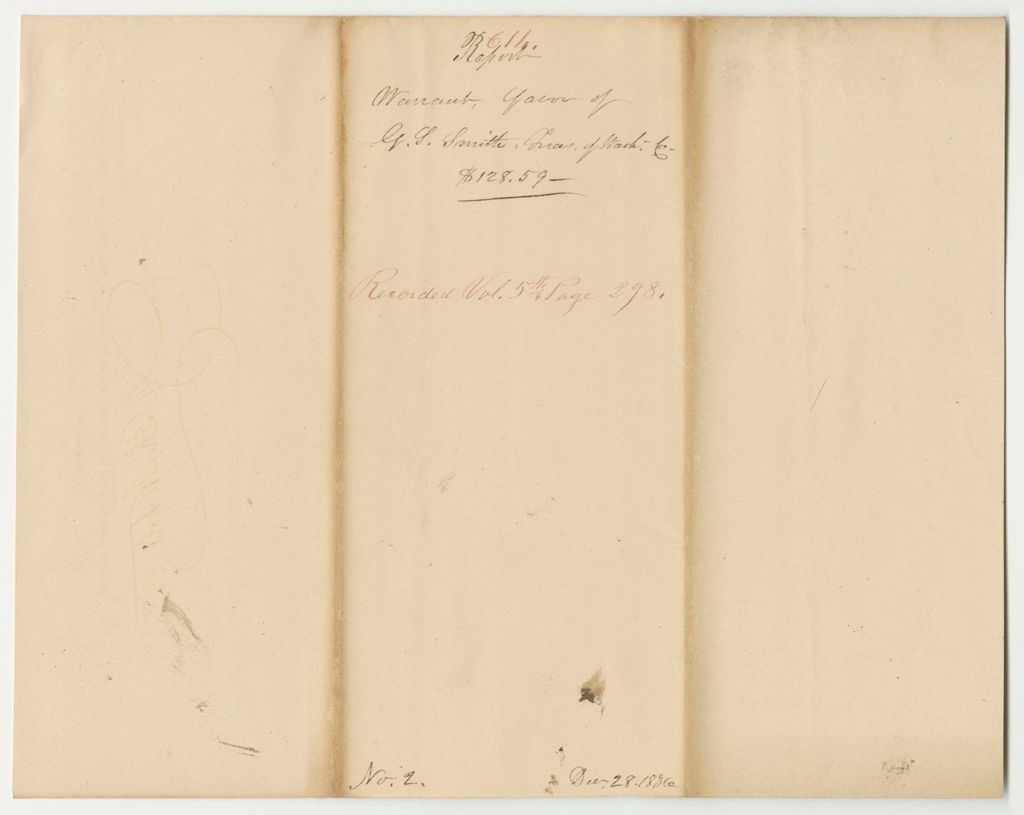 614.
Report
Warrant, favor of
G. S. Smith Treas. of Wash. Co.
$128.59
Recorded Vol. 5th Page 298.
No. 2. Dec. 28. 1836